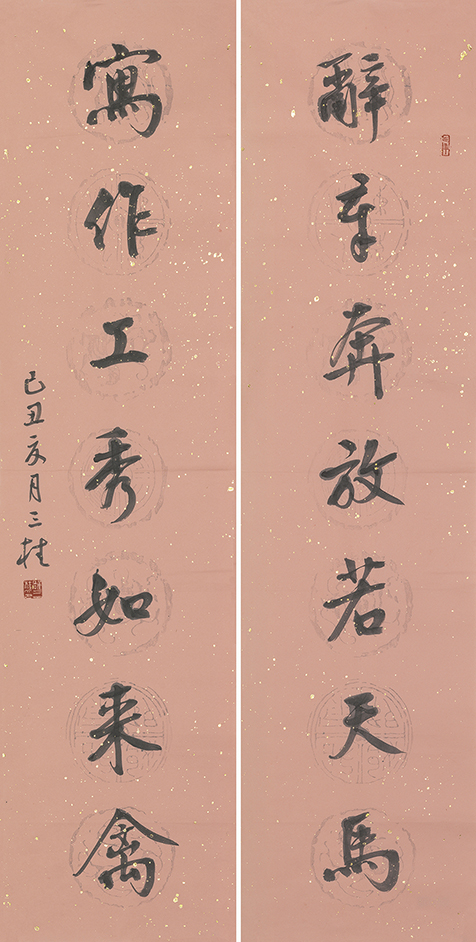 辭章奔放若天馬
寫作工秀如来禽
己丑夏月三